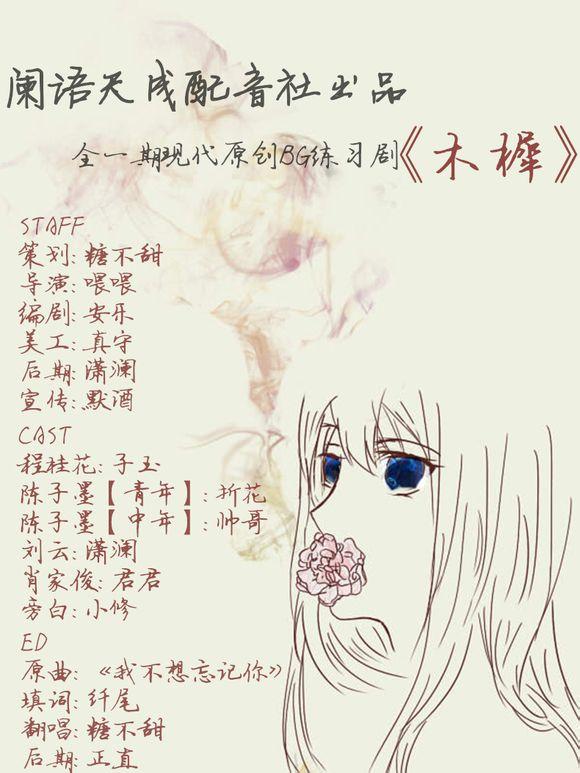 阑语天成配音社出品
全一期现代原创BG练习剧《木樨》
STAFF
策划:糖不甜
导演:喂喂
编剧:安乐
美工:真守
后期:潇澜
宣传:默酒
CAST
程桂花:子玉
陈子墨【青年】:折花
陈子墨【中年】:帅哥
刘云:潇澜
肖家俊:君君
旁白:小修
ED
原曲:《我不想忘记你》
填词:纤尾
翻唱:糖不甜
后期:正直